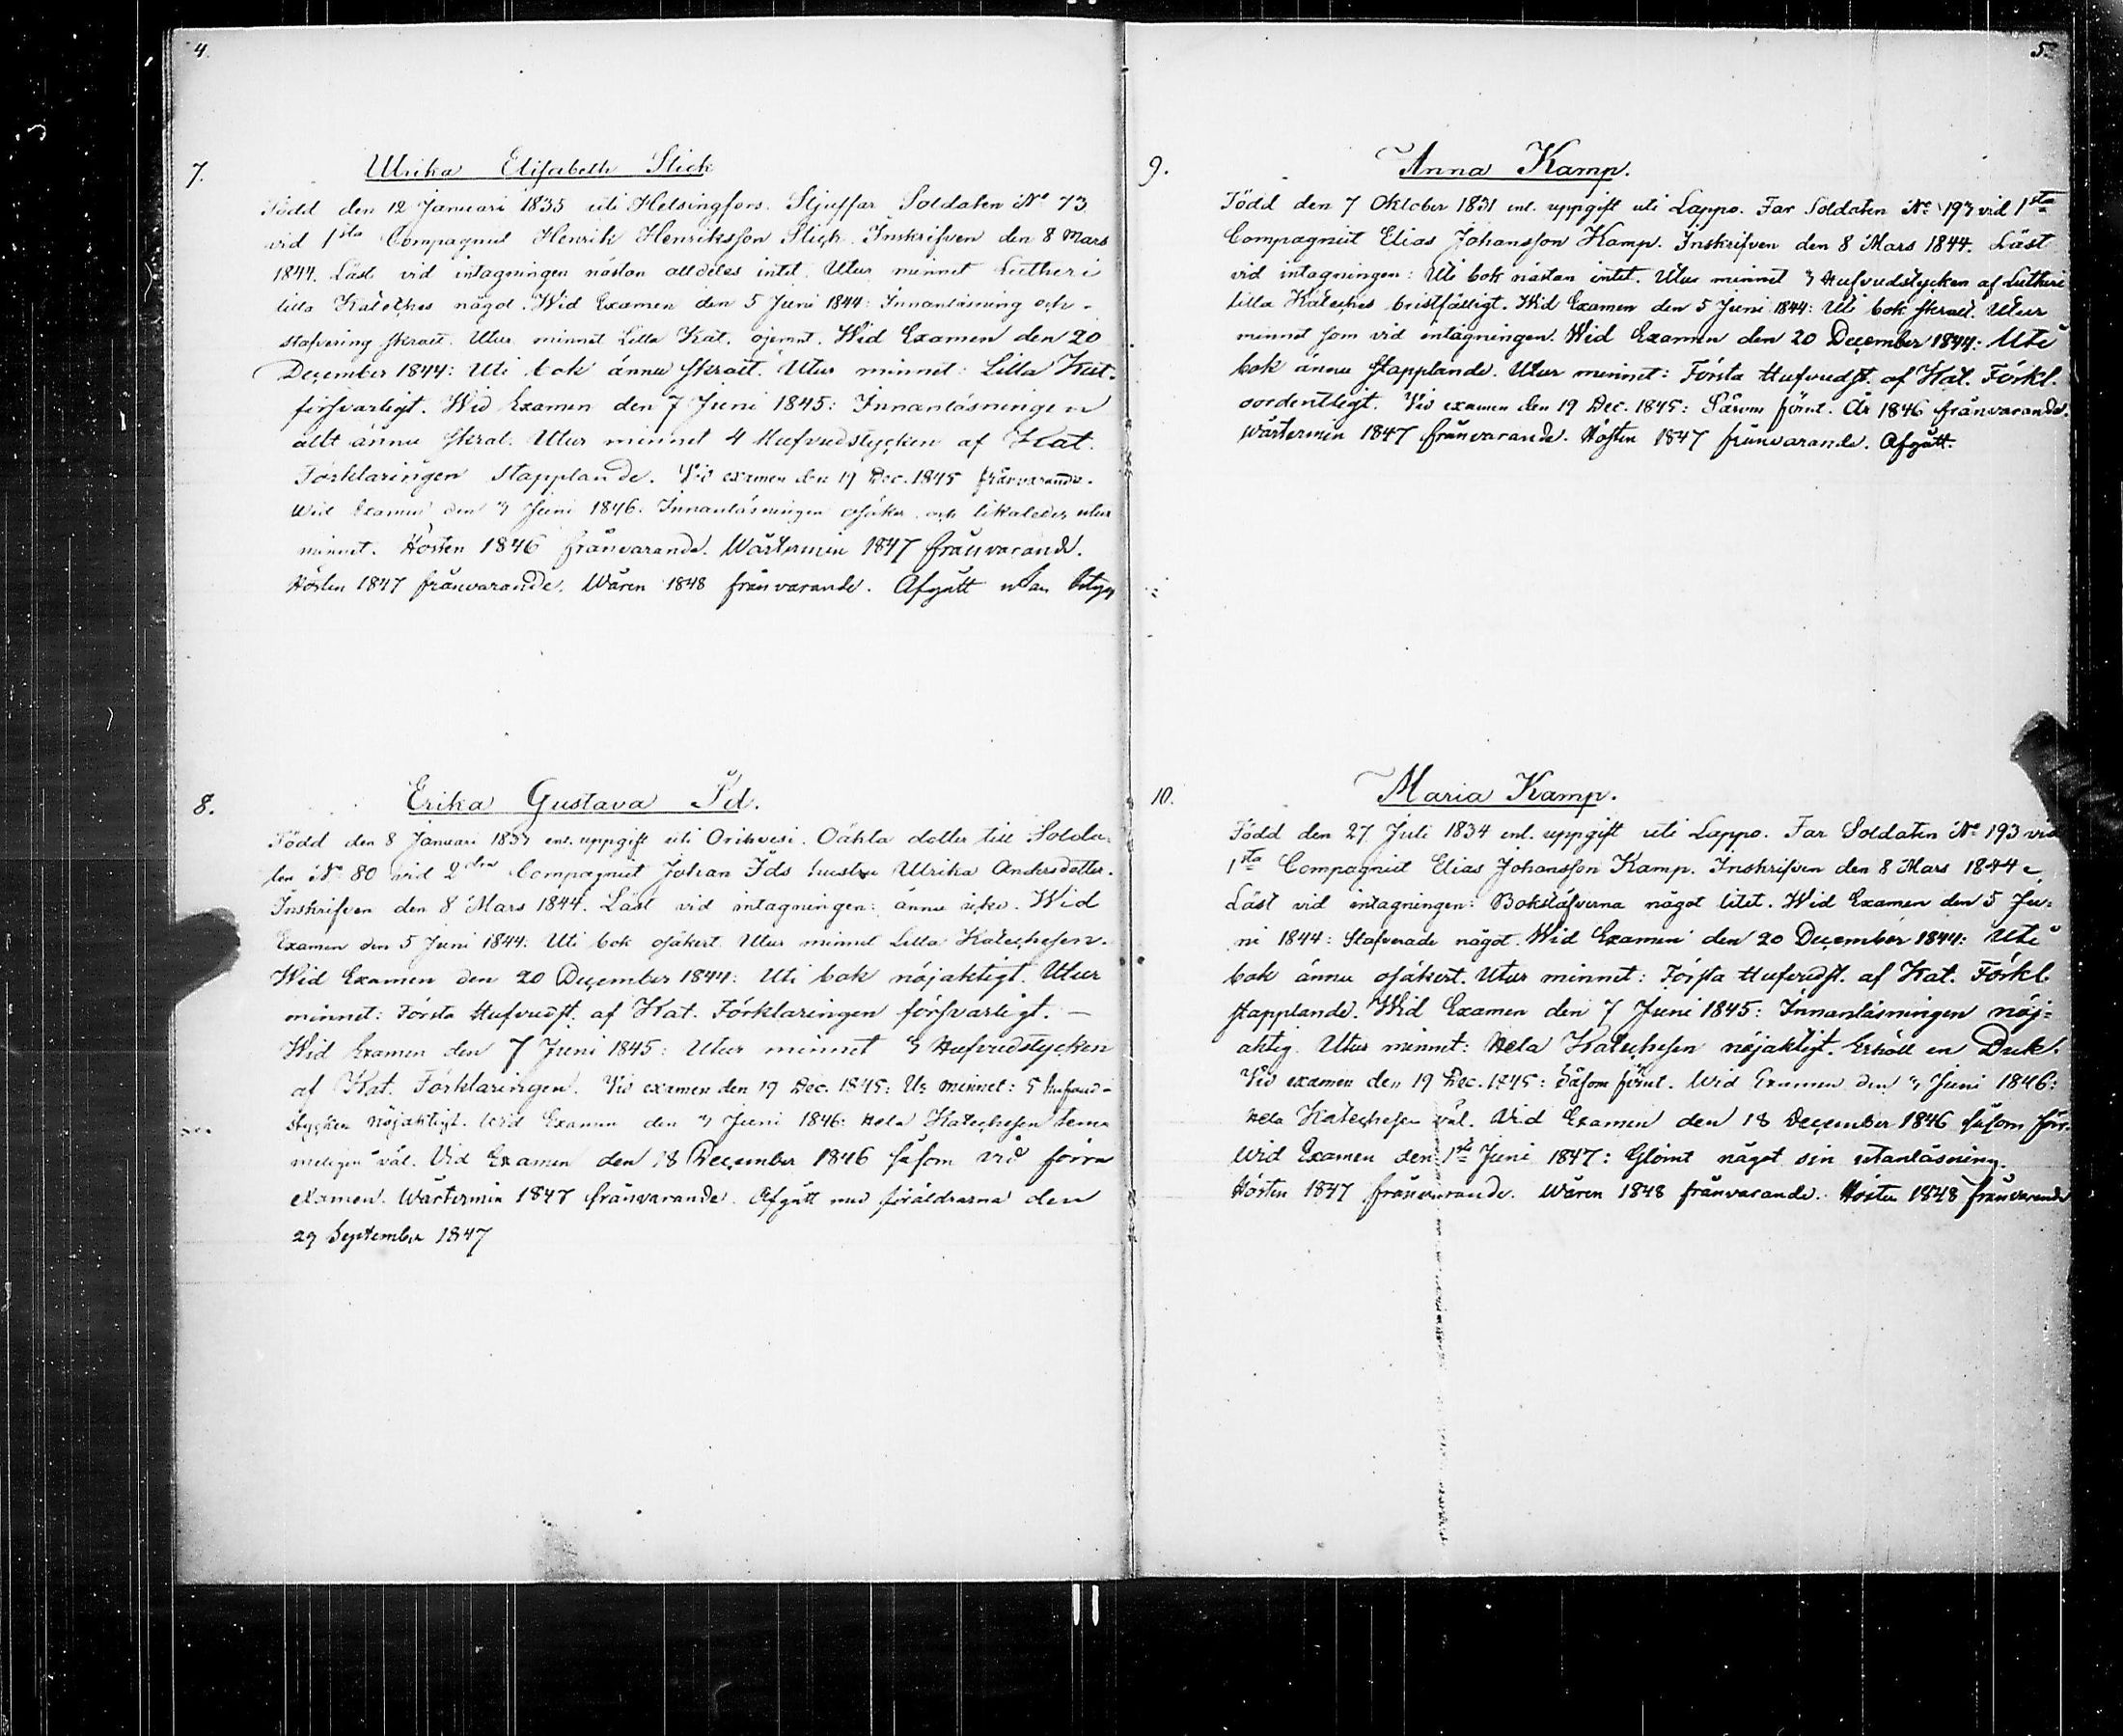 4.
7.
Ulrika Elisabeth Stick
Född den 12 Januari 1835 uti Helsingfors. Stjuffar Soldaten No 73
vid 1sta Compagniet Henrik Henriksson Stick. Inskrifven den 8 Mars
1844. Läst vid intagningen nästan alldeles intet. Utur minnet Lutheri
lilla Kateches något. Wid Examen den 5 Juni 1844: Innanläsning och
stafvering skralt. Utur minnet Lilla Kat. ojemnt. Wid Examen den 20
December 1844: Uti bok ännu skralt. Utur minnet: Lilla Kat.
försvarligt. Wid Examen den 7 Juni 1845: Innanläsningen
allt ännu skral. Utur minnet 4 Hufvudstycken af Kat.
Förklaringen stapplande. Vid examen den 19 Dec. 1845 frånvarande.
Wid Examen den 3 Juni 1846. Innanläsningen osäker och likaledes utur
minnet. Hösten 1846 frånvarande. Wårtermin 1847 frånvarande.
Hösten 1847 frånvarande. Wåren 1848 frånvarande. Afgått utan betyg
8.
Erika Gustava Id.
Född den 8 Januari 1833 enl. uppgift uti Orihvesi. Oäkta dotter till Solda-
ten No 80 vid 2dra Compagniet Johan Ids hustru Ulrika Andersdotter.
Inskrifven den 8 Mars 1844. Läst vid intagningen: ännu icke. Wid
Examen den 5 Juni 1844: Uti bok osäkert. Utur minnet Lilla Katechesen.
Wid Examen den 20 December 1844: Uti bok nöjaktigt. Utur
minnet: Första Hufvudst. af Kat. Förklaringen försvarligt. —
Wid Examen den 7 Juni 1845: Utur minnet 3 Hufvudstycken
af Kat. Förklaringen. Vid examen den 19 Dec. 1845: Ur minnet: 5 hufvud-
stycken nöjaktigt. Wid Examen den 3 Juni 1846: Hela Katechesen tem-
meligen väl. Vid Examen den 18 December 1846 såsom vid förra
examen. Wårtermin 1847 frånvarande. Afgått med föräldrarna den
29 September 1847
5.
9.
Anna Kamp.
Född den 7 Oktober 1831 enl. uppgift uti Lappo. Far Soldaten No 193 vid 1sta
Compagniet Elias Johansson Kamp. Inskrifven den 8 Mars 1844. Läst
vid intagningen: Uti bok nästan intet. Utur minnet 3 Hufvudstycken af Lutheri
lilla Kateches bristfälligt. Wid Examen den 5 Juni 1844: Uti bok skralt. Utur
minnet som vid intagningen. Wid Examen den 20 December 1844: Uti
bok ännu stapplande. Utur minnet: Första Hufvudst. af Kat. Förkl.
oordentligt. Vid examen den 19 Dec. 1845: Såsom förut. År 1846 frånvarande.
Wårtermin 1847 frånvarande. Hösten 1847 frånvarande. Afgått.
10.
Maria Kamp.
Född den 27 Juli 1834 enl. uppgift uti Lappo. Far Soldaten No 193 vid
1sta Compagniet Elias Johansson Kamp. Inskrifven den 8 Mars 1844.
Läst vid intagningen: Bokstäfverna något litet. Wid Examen den 5 Ju-
ni 1844: Stafverade något. Wid Examen den 20 December 1844: Uti
bok ännu osäkert. Utur minnet: Första Hufvudst. af Kat. Förkl.
stapplande. Wid Examen den 7 Juni 1845: Innanläsningen nöj-
aktig. Utur minnet: Hela Katechesen nöjaktigt. Erhöll en Duk.
Vid examen den 19 Dec. 1845: Såsom förut. Wid Examen den 3 Juni 1846:
Hela Katechesen väl. Vid Examen den 18 December 1846 såsom förr.
Wid Examen den 1sta Juni 1847: Glömt något sin utanläsning.
Hösten 1847 frånvarande. Wåren 1848 frånvarande. Hösten 1848 frånvarande